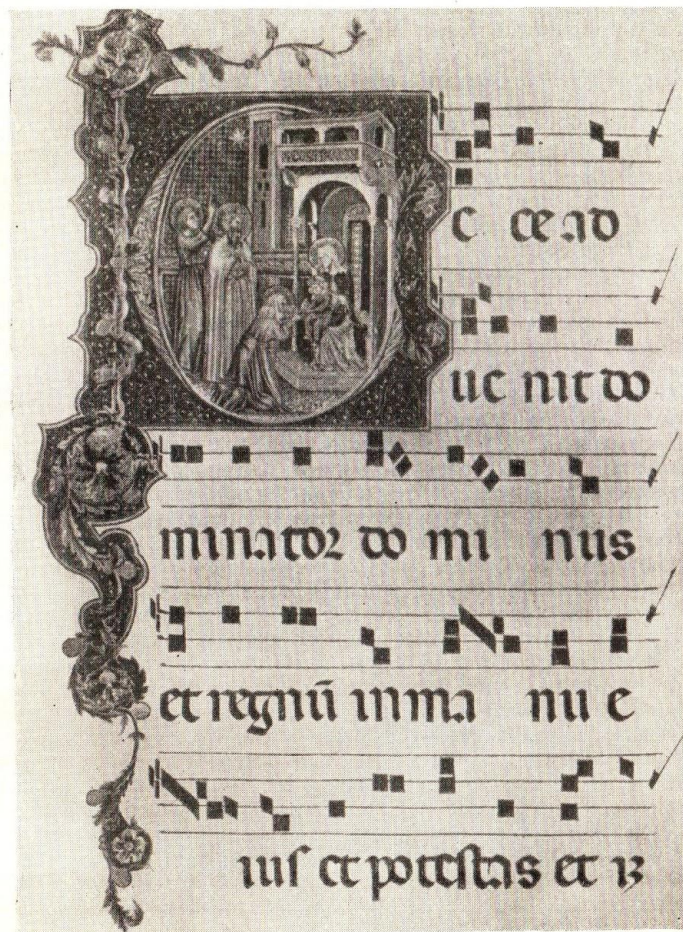 Ec ce ad
ue nit do
minator do mi nus
et regnū in ma nu e
ius et potestas et